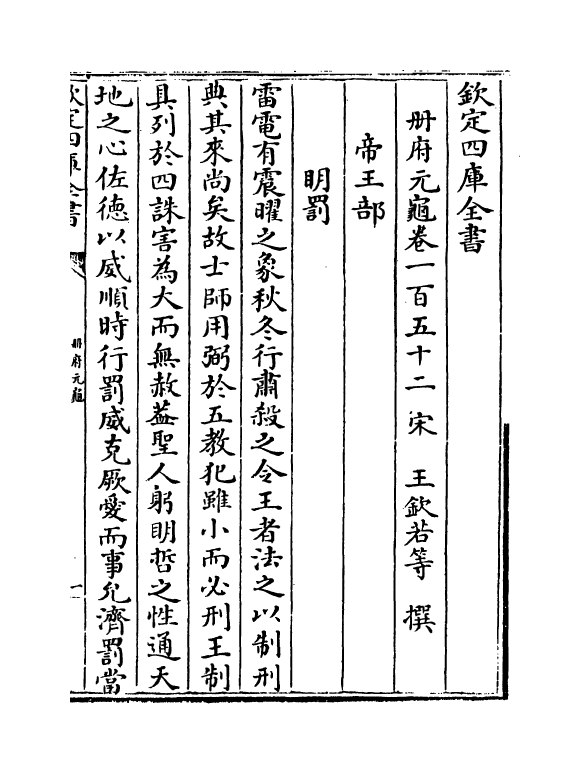 欽定四庫全書
册府元龜卷一百五十二 宋 王欽若等 撰
帝王部
明罰
雷電有震曜之象秋冬行肅殺之令王者法之以制刑
典其來尚矣故士師用弼於五教犯雖小而必刑王制
具列於四誅害為大而無赦葢聖人躬明哲之性通天
地之心佐德以威順時行罰威克厥愛而事允濟罰當
欽定四庫全書
册府元龜
一